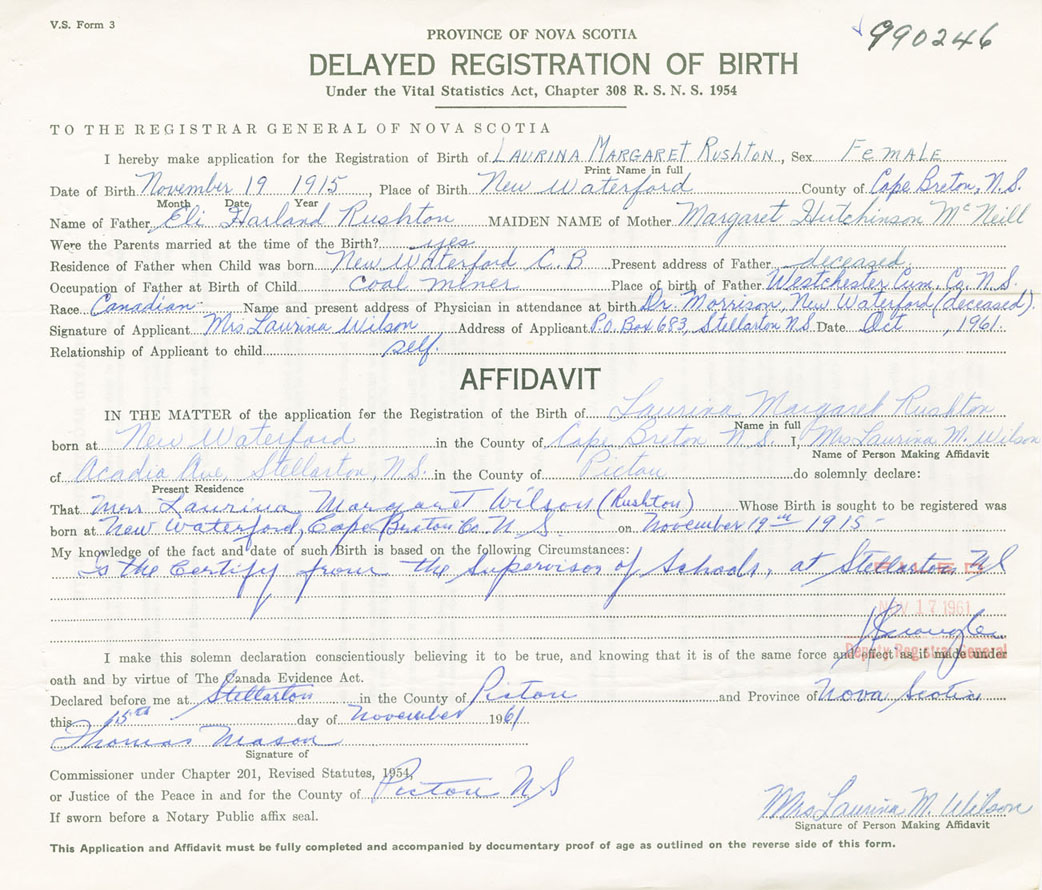 V.S. Form 3
990246
PROVINCE OF NOVA SCOTIA
DELAYED REGISTRATION OF BIRTH
Under the Vital Statistics Act, Chapter 308 R. S. N. S. 1954
TO THE REGISTRAR GENERAL OF NOVA SCOTIA
I hereby make application for the Registration of Birth of LAURINA MARGARET RUSHTON, Sex FeMALE
Print Name in full
Date of Birth November 19 1915, Place of Birth New Waterford County of Cape Breton, N.S.
Month Date Year
Name of Father Eli Harland Rushton MAIDEN NAME of Mother Margaret Hutchinson McNeill
Were the Parents married at the time of the Birth? yes
Residence of Father when Child was born New Waterford C.B Present address of Father deceased
Occupation of Father at Birth of Child coal miner Place of birth of Father Westchester Cum. Co. N.S.
Race Canadian Name and present address of Physician in attendance at birth Dr. Morrison, New Waterford (deceased).
Signature of Applicant Mrs Laurina Wilson Address of Applicant P.O. Box 683, Stellarton N.S. Date Oct , 1961.
Relationship of Applicant to child self.
AFFIDAVIT
IN THE MATTER of the application for the Registration of the Birth of Laurina Margaret Rushton
Name in full
born at New Waterford in the County of Cape Breton N.S. I, Mrs Laurina M. Wilson
Name of Person Making Affidavit
of Acadia Ave, Stellarton, N.S. in the County of Pictou do solemnly declare:
Present Residence
That Mrs Laurina Margaret Wilson (Rushton) Whose Birth is sought to be registered was
born at New Waterford, Cape Breton Co. N S on November 19th 1915-
My knowledge of the fact and date of such Birth is based on the following Circumstances:
Is the Certify from the Supervisor of Schools, at Stellarton NS
FILED
NOV 17 1961
Deputy Registrar General
I make this solemn declaration conscientiously believing it to be true, and knowing that it is of the same force and effect as if made under
oath and by virtue of The Canada Evidence Act.
Declared before me at Stellarton in the County of Pictou and Province of Nova Scotia
this 15th day of November 1961
Thomas Mason
Signature of
Commissioner under Chapter 201, Revised Statutes, 1954,
or Justice of the Peace in and for the County of Pictou NS
If sworn before a Notary Public affix seal.
Mrs Laurina M. Wilson
Signature of Person Making Affidavit
This Application and Affidavit must be fully completed and accompanied by documentary proof of age as outlined on the reverse side of this form.